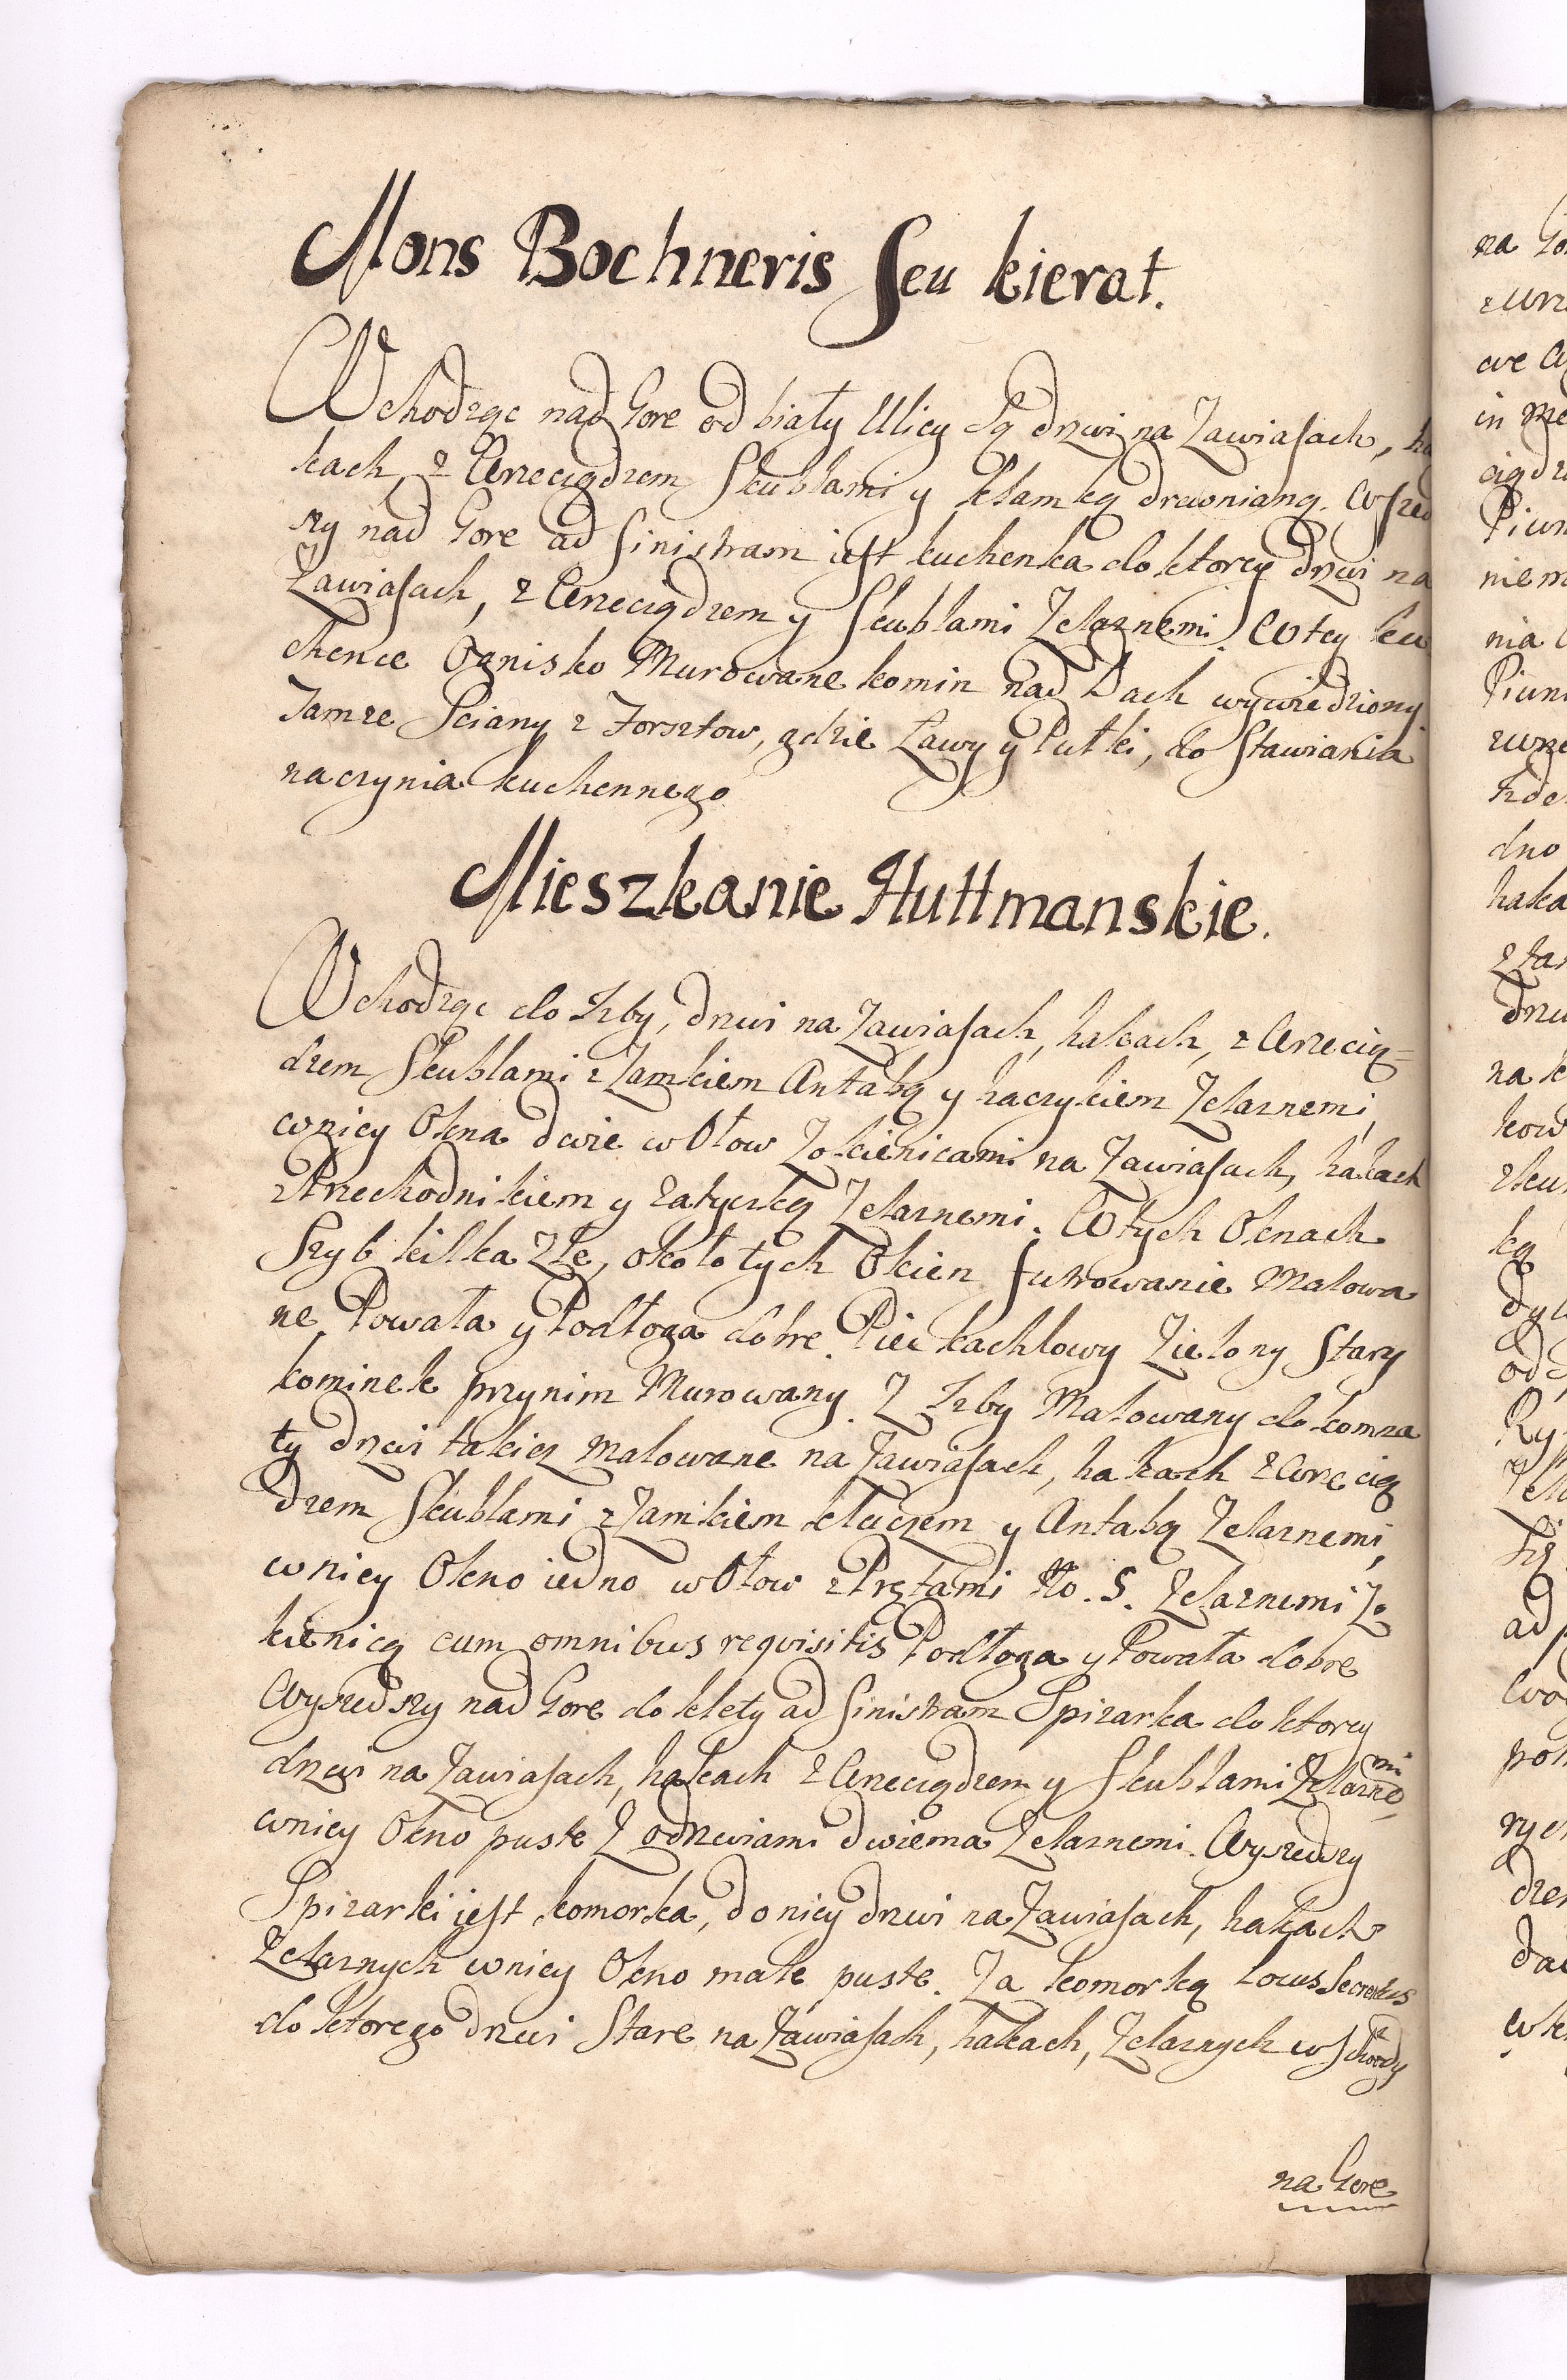 Mons Bochneris seu kierat.
Wchodząc nad Gore od biały Ulicy są drzwi na Zawiasach, ha
kach, z Wrzeciądzem Skublami y klamką drewnianą. Wszed
szy nad Gore ad sinistram iest kuchenka do ktorey drzwi na
Zawiasach, z Wrzeciądzem y Skublami Zelaznemi. W tey ku
chence Ognisko Murowane komin nad Dach wywiedziony
Tamze Sciany z Forsztow, gdzie Ławy y Pułki, do Stawiania
naczynia kuchennego
Mieszkanie Huttmanskie.
Wchodząc do Izby, drzwi na Zawiasach, hakach, z Wrzecią=
dzem Skublami z Zamkiem Antabą y haczykiem Zelaznemi,
w niey Okna dwie w Ołow Zokienicami na Zawiasach, hakach
z Przechodnikiem y zatyczką Zelaznemi. W tych Oknach
Szyb kilka złe, około tych Okien futrowanie Malowa
ne Powała y Podłoga dobre. Piec kachlowy Zielony Stary
kominek przynim Murowany. Z Izby Malowany do komna
ty drzwi takież malowane na Zawiasach, hakach z Wrzecią
dzem Skublami z Zamkiem kluczem y Antabą Zelaznemi,
w niey Okno iedno w Ołow z Prętami No. 5. Zelaznemi Zo
kienicą cum omnibus requisitis Podłoga y Powała dobre
Wyszedszy nad Gore do klety ad sinistram Spizarka do ktorey
drzwi na Zawiasach, hakach z Wrzeciądzem y Skublami Zelaznemi,
w niey Okno puste Z odrzwiami dwiema Zelaznemi. Wyszedszy
Spizarki iest komorka, do niey drzwi na Zawiasach, hakach
Zelaznych w niey Okno małe puste. Za komorką Locus Secretus
do ktorego drzwi Stare na Zawiasach, hakach, Zelaznych wschody
na Gore
na
in me
ciądz
niem
nia
dno
haka
drzw
na k
kow
ką
ad